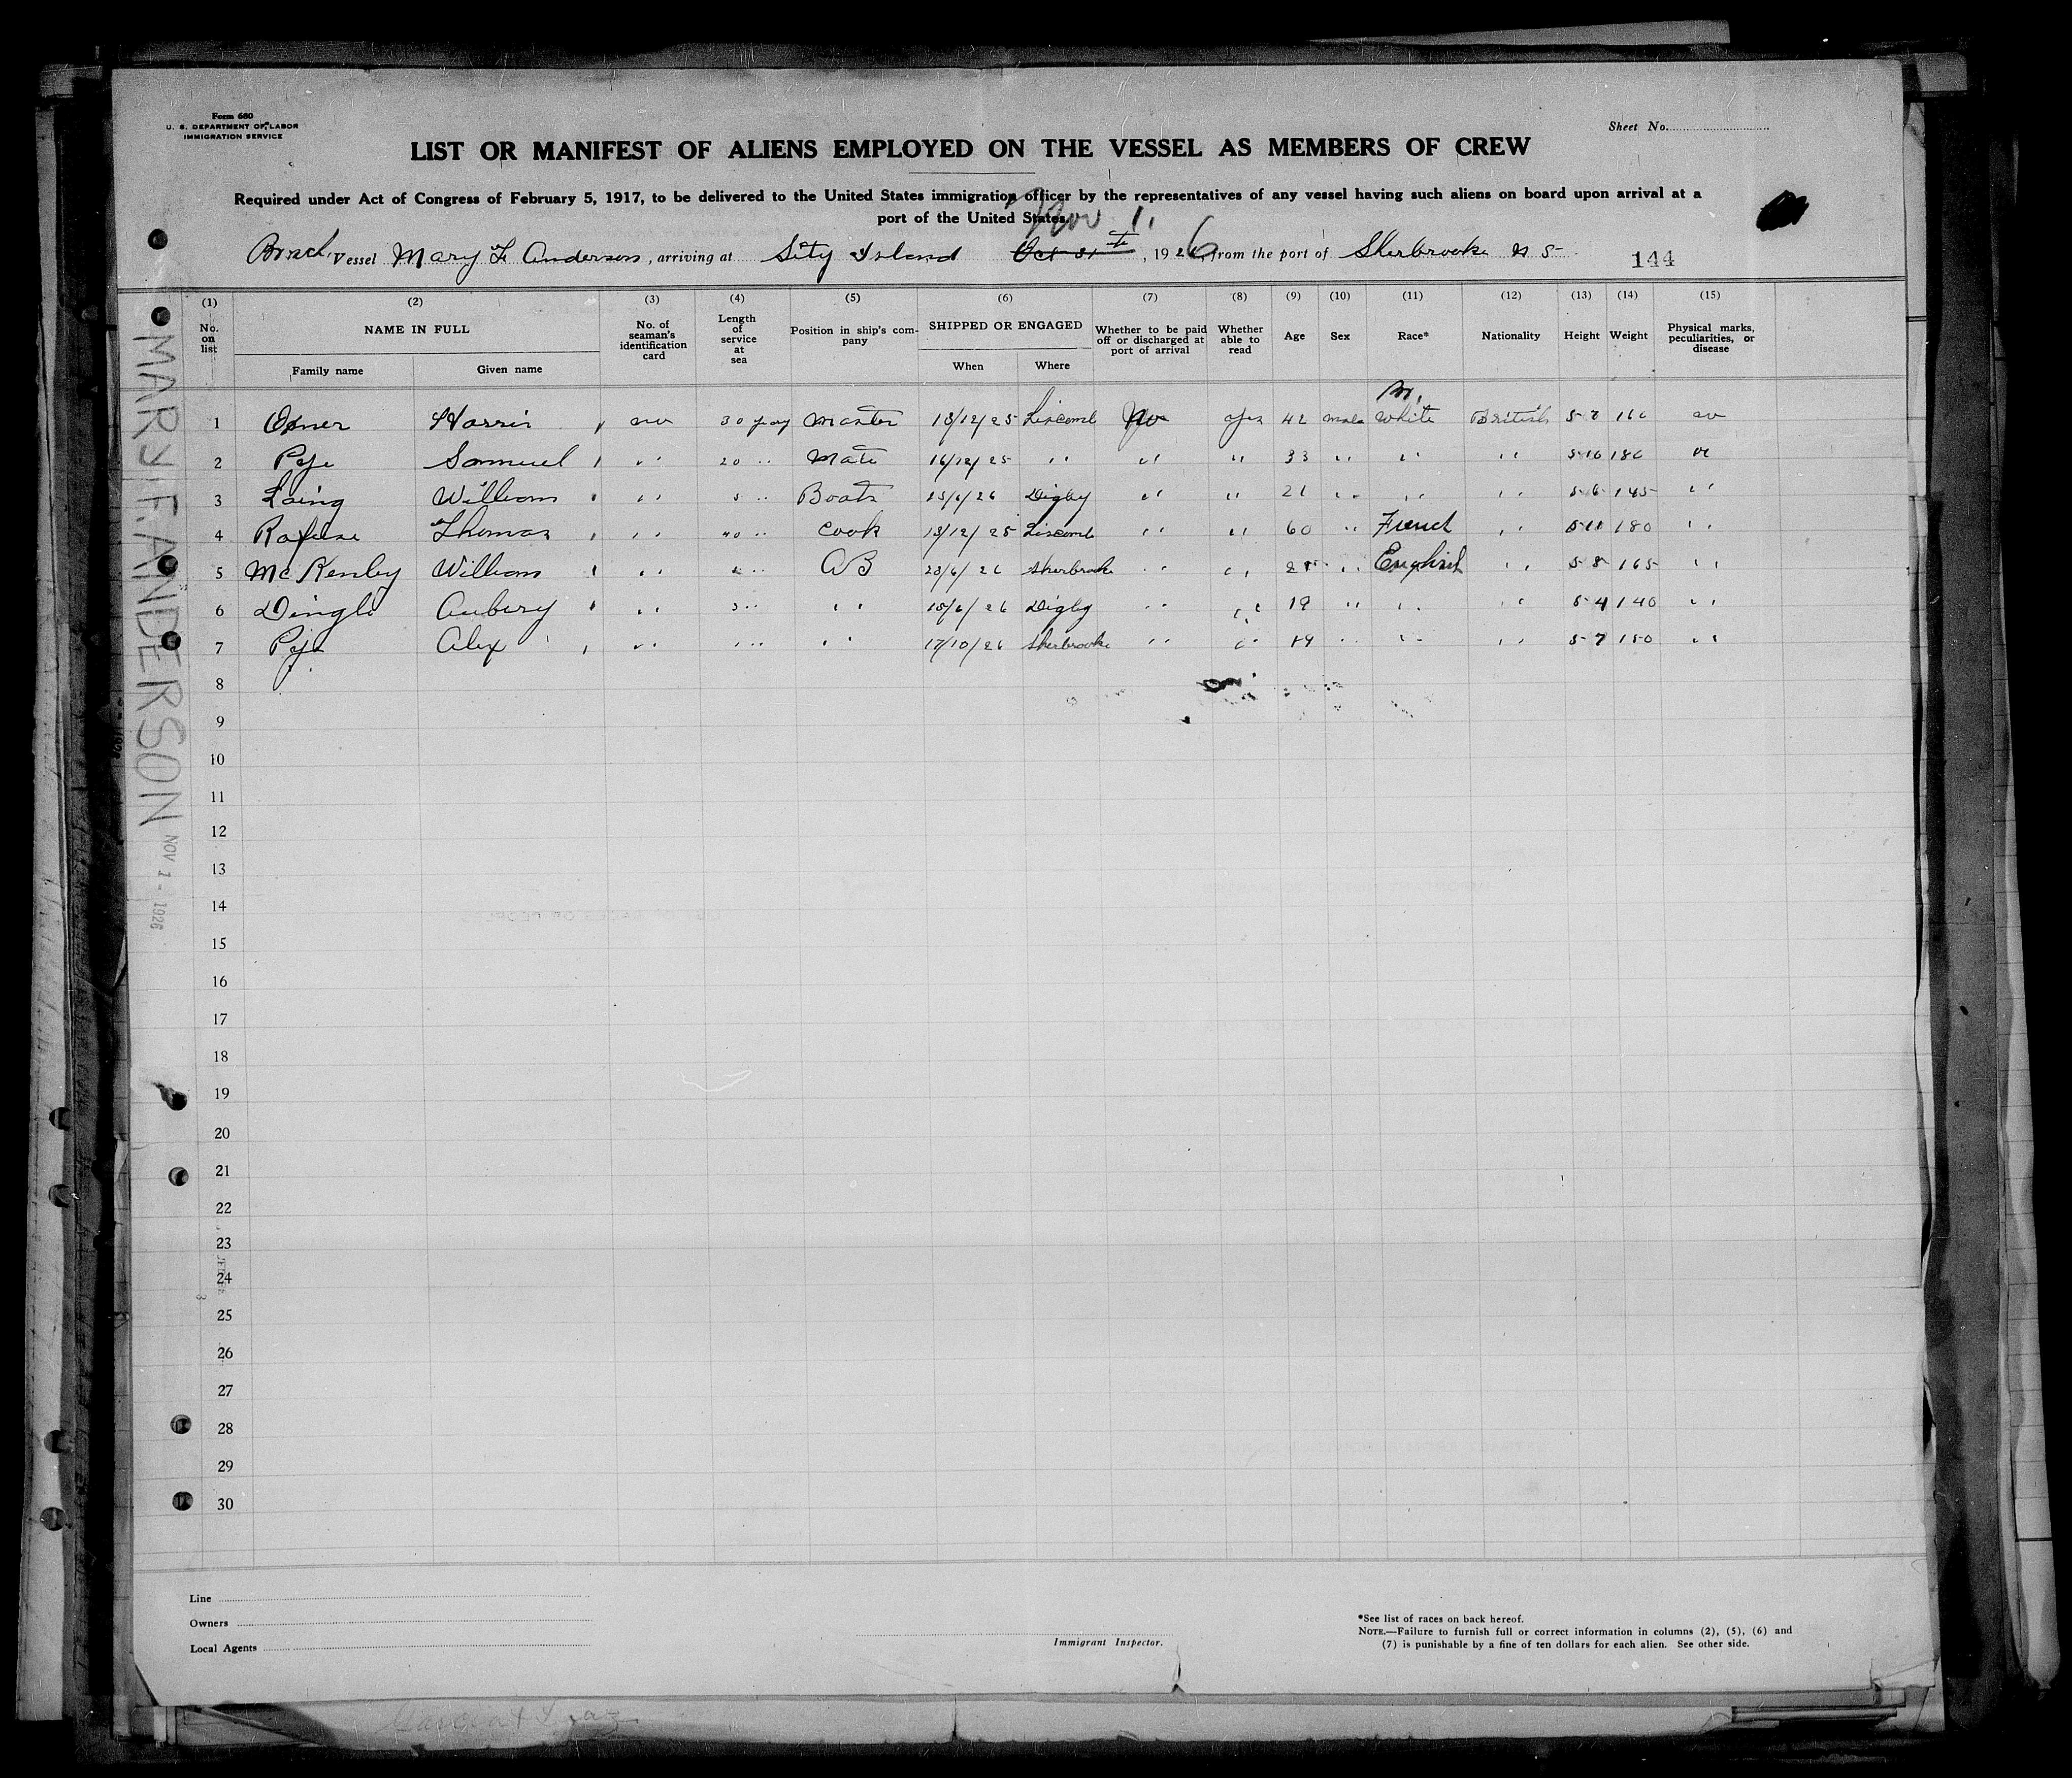 Form 680
U. S. DEPARTMENT OF LABOR
IMMIGRATION SERVICE
Sheet No.
LIST OR MANIFEST OF ALIENS EMPLOYED ON THE VESSEL AS MEMBERS OF CREW
Required under Act of Congress of February 5, 1917, to be delivered to the United States immigration officer by the representatives of any vessel having such aliens on board upon arrival at a
port of the United States
Nov 1.
Vessel Mary F Anderson, arriving at Sity Island Oct 31th, 1926, from the port of Sherbrooke N S 144
(1) (2) (3) (4) (5) (6) (7) (8) (9) (10) (11) (12) (13) (14) (15)
No. on list NAME IN FULL No. of seaman's identification card Length of service at sea Position in ship's company SHIPPED OR ENGAGED Whether to be paid off or discharged at port of arrival Whether able to read Age Sex Race* Nationality Height Weight Physical marks, peculiarities, or disease
Family name Given name When Where
1 Harris 30 years Master 13/12/25 Liscomb No yes 42 male White British
2 Samuel " 20 " Mate 16/12/25 " " " 33 " " " 5-10 180
3 Laing William " 5 " Boats Digby " " 21 " " " 5-6 145 "
4 Thomas " 40 " Cook 13/12/25 Liscomb " " 60 " French " 5-11 180 "
5 William " " AB 23/6/26 Sherbrooke " " " English " 5-8 165 "
6 Dingle Aubery " 3 " " 15/6/26 Digby " " 19 " " " 5-4 140 "
7 Alex " " " 17/10/26 Sherbrooke " " 19 " " " 5-7 150 "
8
9
10
11
12
13
14
15
16
17
18
19
20
21
22
23
24
25
26
27
28
29
30
MARY F. ANDERSON NOV 1 - 1926
Line
Owners
Local Agents
Immigrant Inspector.
*See list of races on back hereof.
NOTE.—Failure to furnish full or correct information in columns (2), (5), (6) and
(7) is punishable by a fine of ten dollars for each alien. See other side.